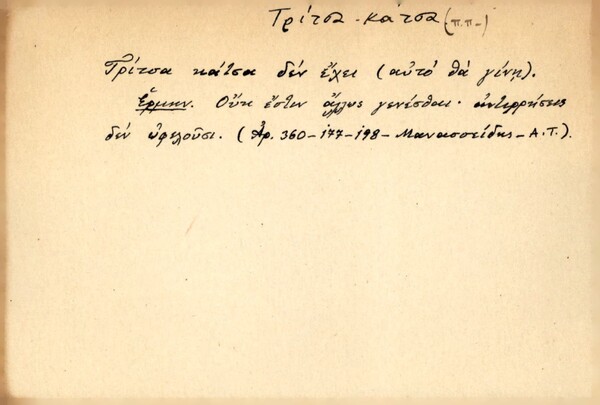 Τρίτσα - κάτσα (π.π-)
Τρίτσα κάτσα δέν ἔχει (αὐτό θά γίνῃ).
Ἑρμην. Οὔκ ἔστιν ἄλλως γενέσθαι· ἀντιρρήσεις
δέν ὠφελοῦσι. (Ἀρ. 360-177-198-Μανασσείδης-Α.Τ.).